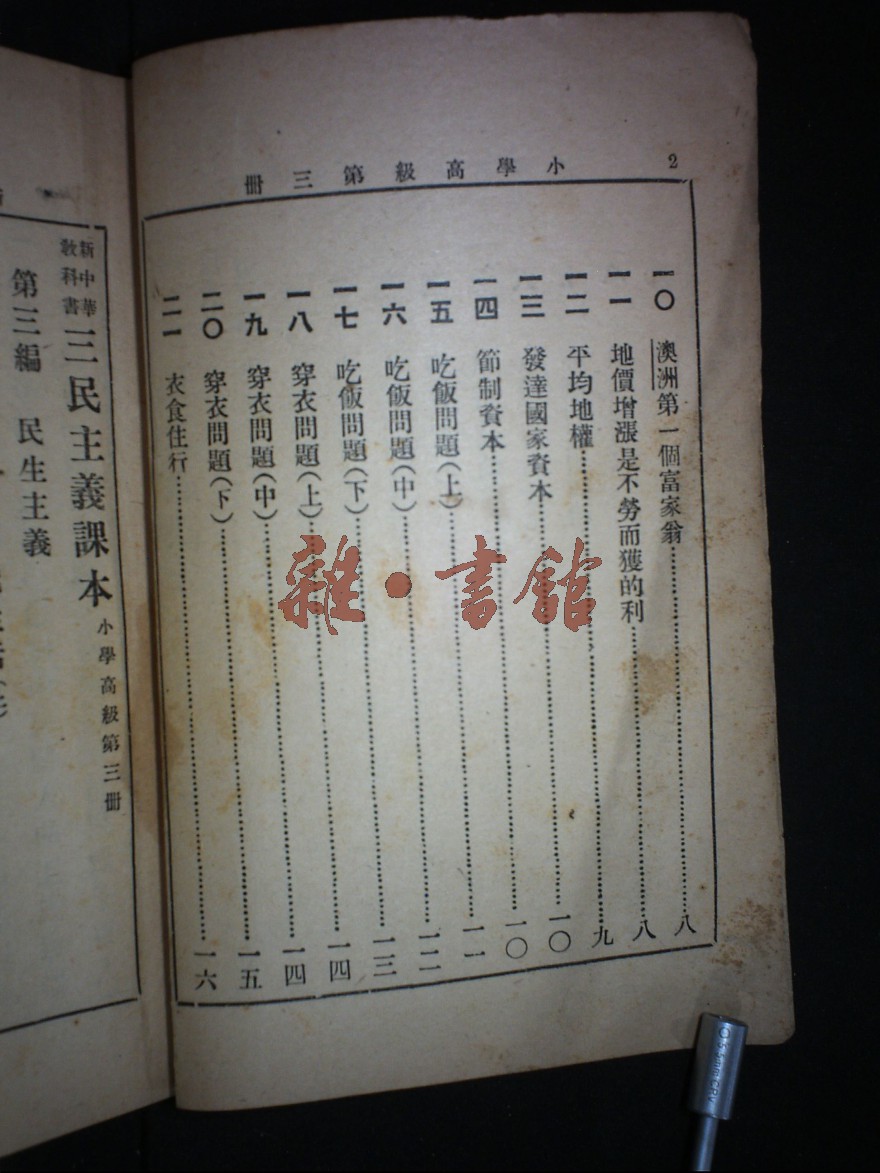 2
小學高級第三冊
一〇 澳洲第一個富家翁……八
一一 地價增漲是不勞而獲的利……八
一二 平均地權……九
一三 發達國家資本……一〇
一四 節制資本……一〇
一五 吃飯問題(上)……一一
一六 吃飯問題(中)……一二
一七 吃飯問題(下)……一三
一八 穿衣問題(上)……一四
一九 穿衣問題(中)……一四
二〇 穿衣問題(下)……一五
二一 衣食住行……一六
雜·書館
新中華教科書 三民主義課本 小學高級第三冊
第三編 民生主義